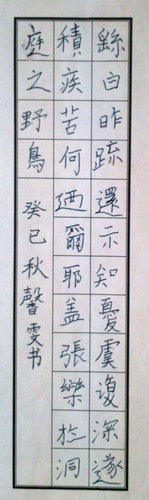 繇白昨疏還示知憂虞復深遂
積疾苦何迺爾耶盖張樂於洞
庭之野鳥 癸巳秋馨雯书